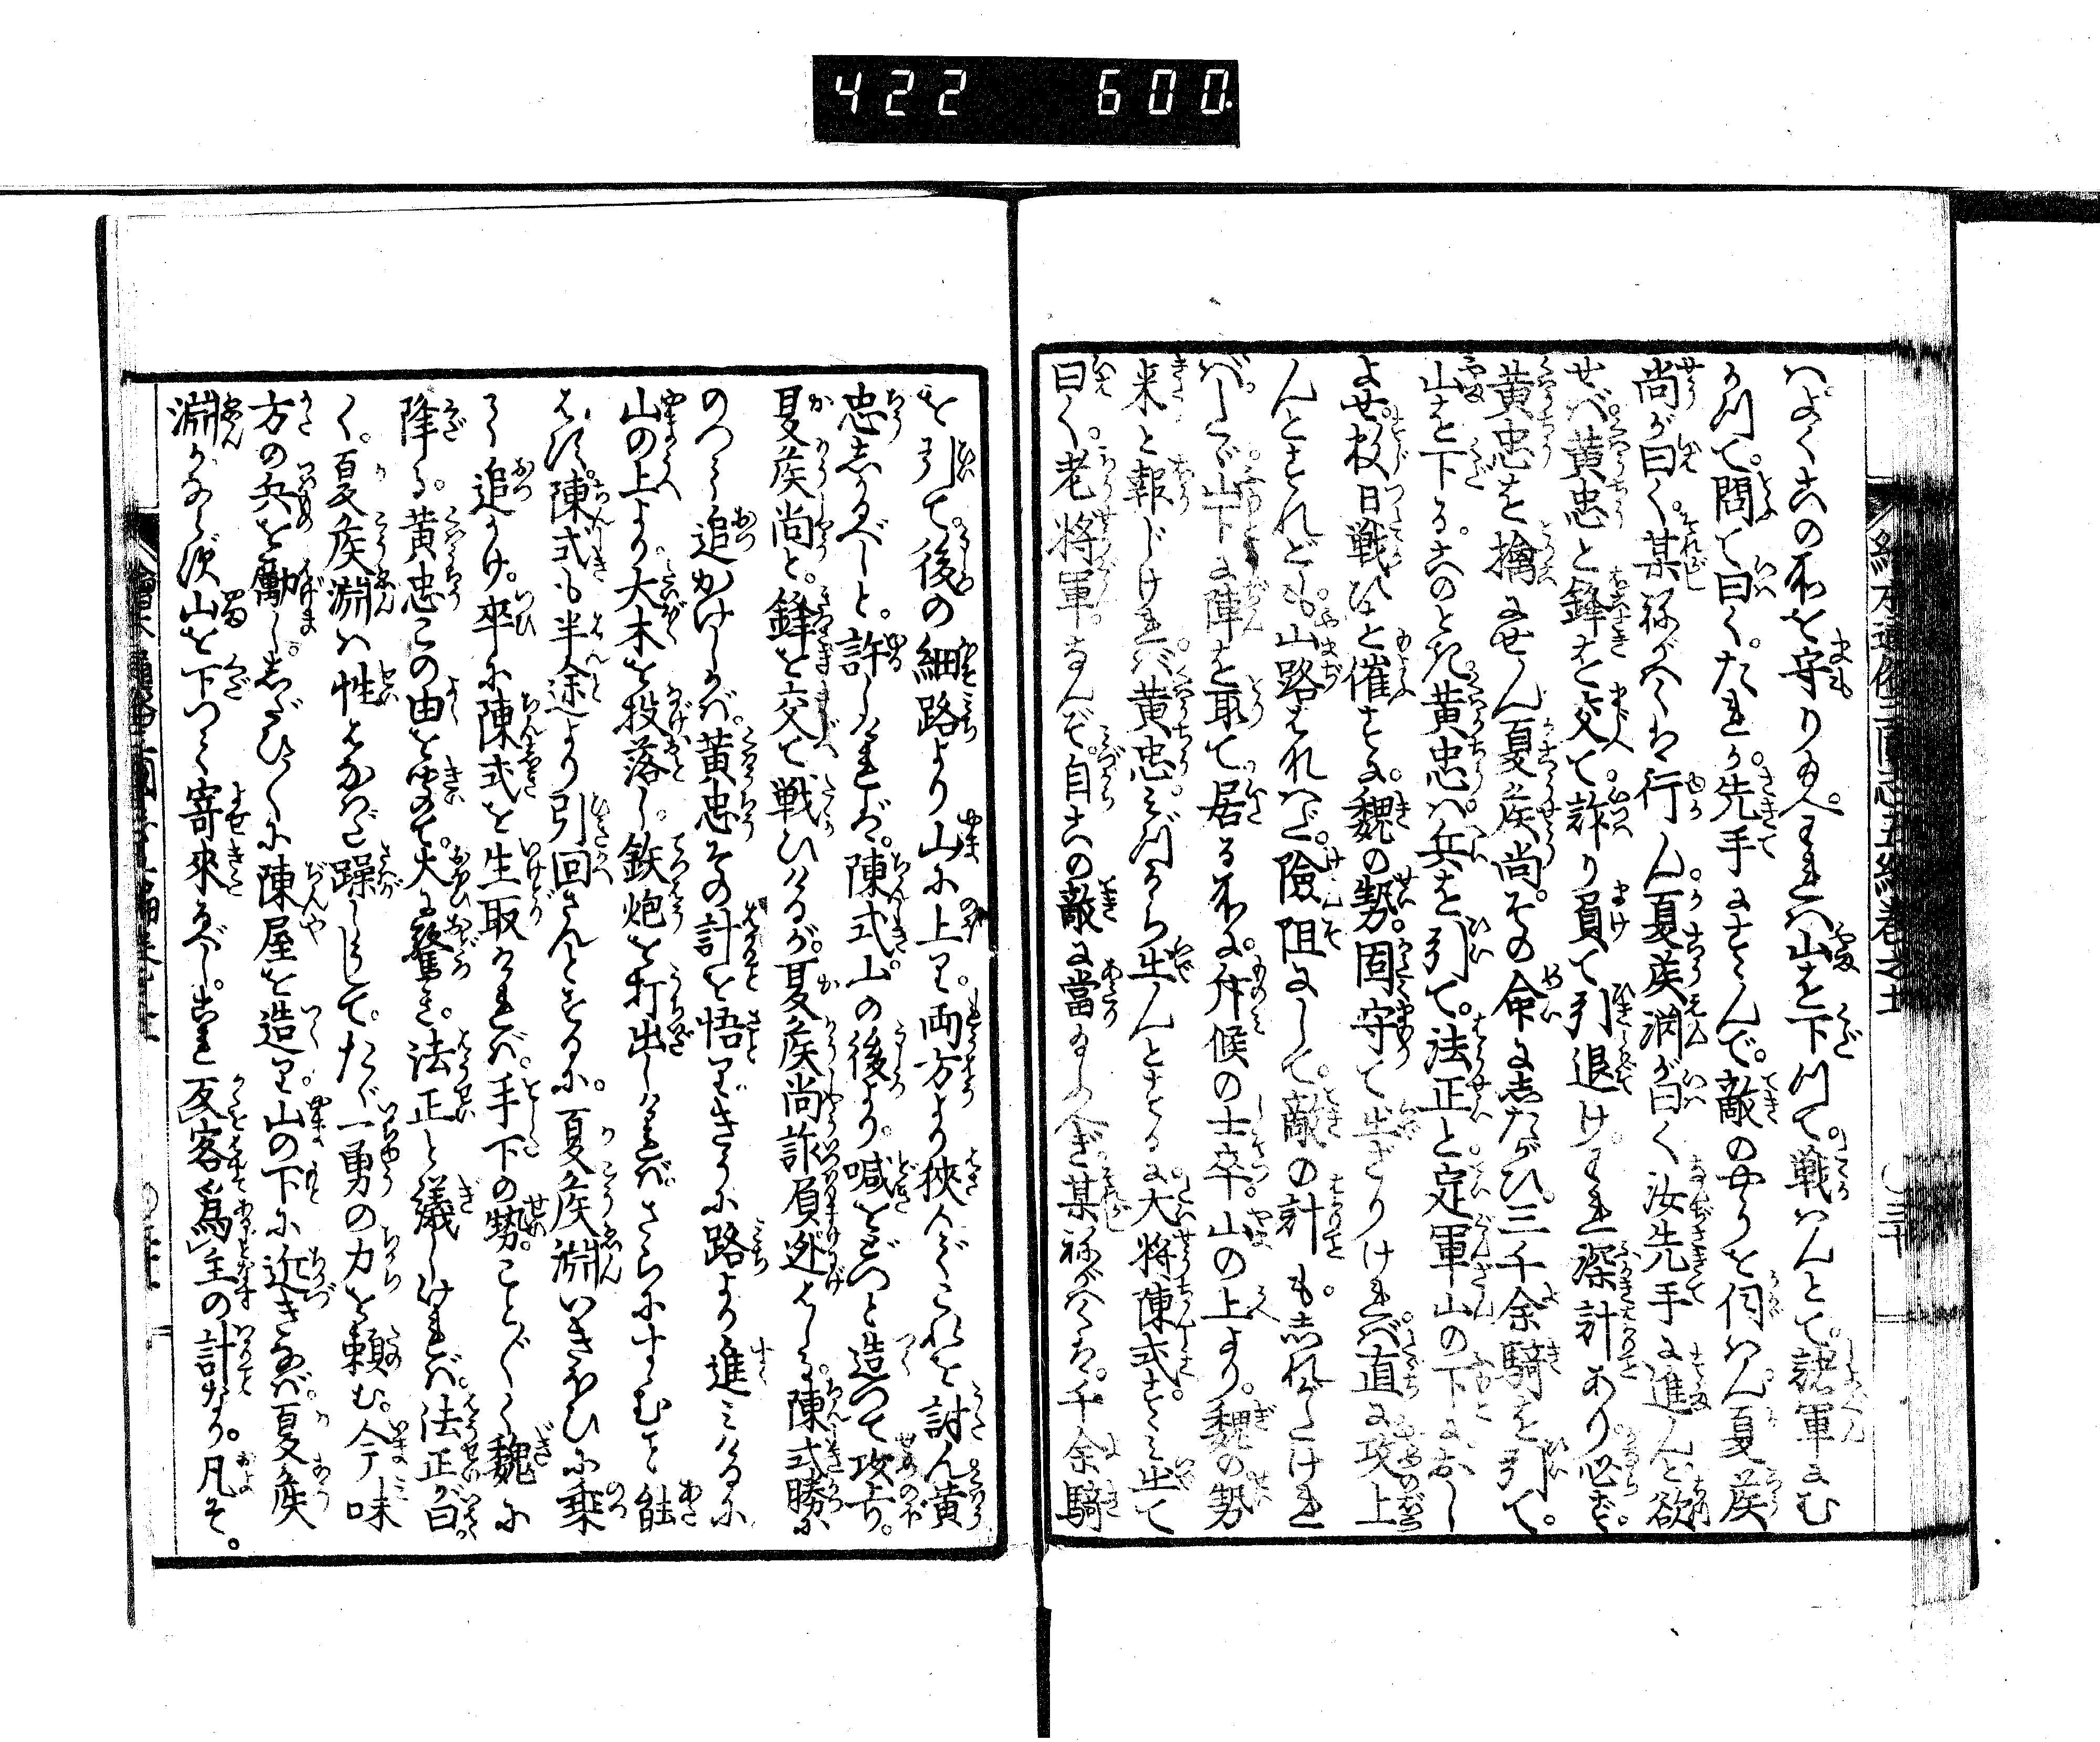 422 600
はよくこの所を守り給へ。われハ山を下つて。戦ハんとて。諸軍にむ
かつて。問て曰く。たれか。先手にすゝんで。敵のやうを伺ハん。夏侯
尚が曰く。某ねがハくハ行ん。夏侯淵が曰く汝先手に進んと欲
せバ。黄忠と鋒を交て。詐り負て引退け。われ深計あり必ず。
黄忠を擒にせん夏侯尚。その命にしたがひ。三千余騎を引て。
山を下る。このとき黄忠ハ。兵を引て。法正と定軍山の下におし
よせ。数日戦ひを催すに。魏の勢。固守て出ざりけれバ。直に攻上
んとすれども。山路すれハど。険阻にして。敵の計も。しれがたけれ
バ。しバし山下に陣を取て。居る所に。斥候の士卒。山の上より。魏の勢
来と報じけれバ。黄忠。ミづから出んとするに。大将陳式。すゝミ出て
曰く。老将軍。なんぞ。自この敵に當給ハん某ねがハくハ。千余騎
を引て。後の細路より山に上り。両方より挟んでこれを討ん黄
忠しかるべしと。許しけれバ。陳式山の後より。喊をどつと造つて攻上。
夏侯尚と。鋒を交て戦ひけるが。夏侯尚詐負逃はしる。陳式勝に
のつて追かけしかバ。黄忠その計を悟り。いそぎに路より進ミけるに
山の上より。大木を投落し。鉄炮を打出しけれバ。さらにすゝむを能
はず。陳式も半途より引回さんとするに。夏侯淵いきほひに乗
て追かけ。卒に陳式を生取けれバ。手下の勢。ことごとく魏に
降る。黄忠この由を聞て。大に驚き。法正と議しけれバ。法正が曰
く。夏侯淵ハ性はなハだ躁しうして。たゞ一勇の力を頼む。今味
方の兵を勵し。しだひしだひに陳屋を造り。山の下に近きなバ。夏侯
淵かならず山を下つて寄来るべし。これ反客為主の計なり。凡そ。